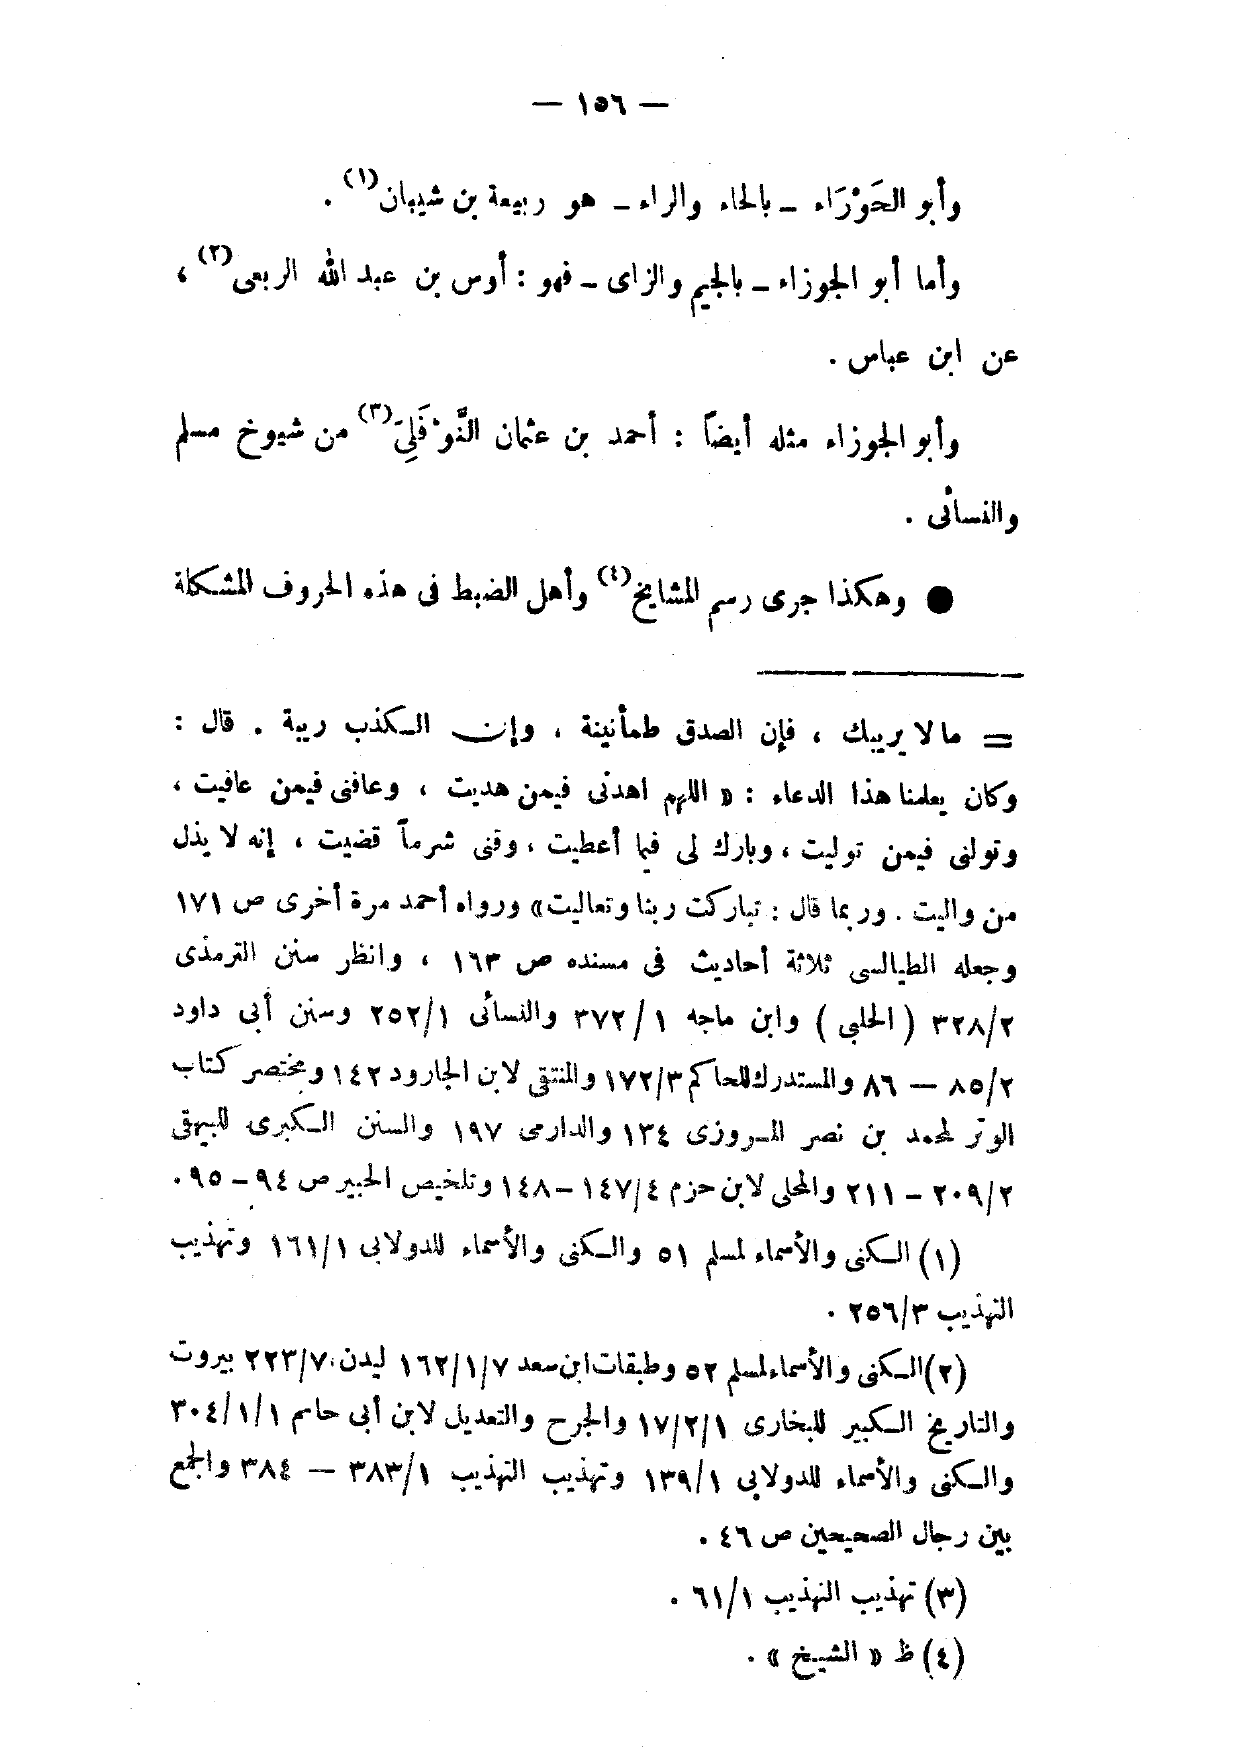 — ١٥٦ —
وأبو الحَوْرَاء – بالحاء والراء – هو ربيعة بن شيبان(١) .
وأما أبو الجوزاء – بالجيم والزاى – فهو : أوس بن عبد الله الربعى(٢) ،
عن ابن عباس .
وأبو الجوزاء مثله أيضاً : أحمد بن عثمان النَّوْفَلِىّ(٣) من شيوخ مسلم
والنسائى .
● وهكذا جرى رسم المشايخ(٤) وأهل الضبط فى هذه الحروف المشكلة
= ما لا يريبك ، فإن الصدق طمأنينة ، وإن الكذب ريبة . قال :
وكان يعلمنا هذا الدعاء : « اللهم اهدنى فيمن هديت ، وعافنى فيمن عافيت ،
وتولنى فيمن توليت ، وبارك لى فيما أعطيت ، وقنى شر ماً قضيت ، إنه لا يذل
من واليت . وربما قال : تباركت ربنا وتعاليت» ورواه أحمد مرة أخرى ص ١٧١
وجعله الطيالسى ثلاثة أحاديث فى مسنده ص ١٦٣ ، وانظر سنن الترمذى
٣٢٨/٢ ( الحلبى ) وابن ماجه ٣٧٢/١ والنسائى ٢٥٢/١ وسنن أبى داود
٨٥/٢ — ٨٦ والمستدرك للحاكم ١٧٢/٣ والمنتقى لابن الجارود ١٤٢ ومختصر كتاب
الوتر لمحمد بن نصر المروزى ١٣٤ والدارمى ١٩٧ والسنن الكبرى للبيهقى
٢٠٩/٢ – ٢١١ والمحلى لابن حزم ١٤٧/٤ – ١٤٨ وتلخيص الحبير ص ٩٤ – ٩٥ .
(١) الكنى والأسماء لمسلم ٥١ والكنى والأسماء للدولابى ١٦١/١ وتهذيب
التهذيب ٢٥٦/٣ .
(٢) الكنى والأسماء لمسلم ٥٢ وطبقات ابن سعد ١٦٢/١/٧ ليدن، ٢٢٣/٧ بيروت
والتاريخ الكبير للبخارى ١٧/٢/١ والجرح والتعديل لابن أبى حاتم ٣٠٤/١/١
والكنى والأسماء للدولابى ١٣٩/١ وتهذيب التهذيب ٣٨٣/١ — ٣٨٤ والجمع
بين رجال الصحيحين ص ٤٦ .
(٣) تهذيب التهذيب ٦١/١ .
(٤) ظ « الشيخ » .